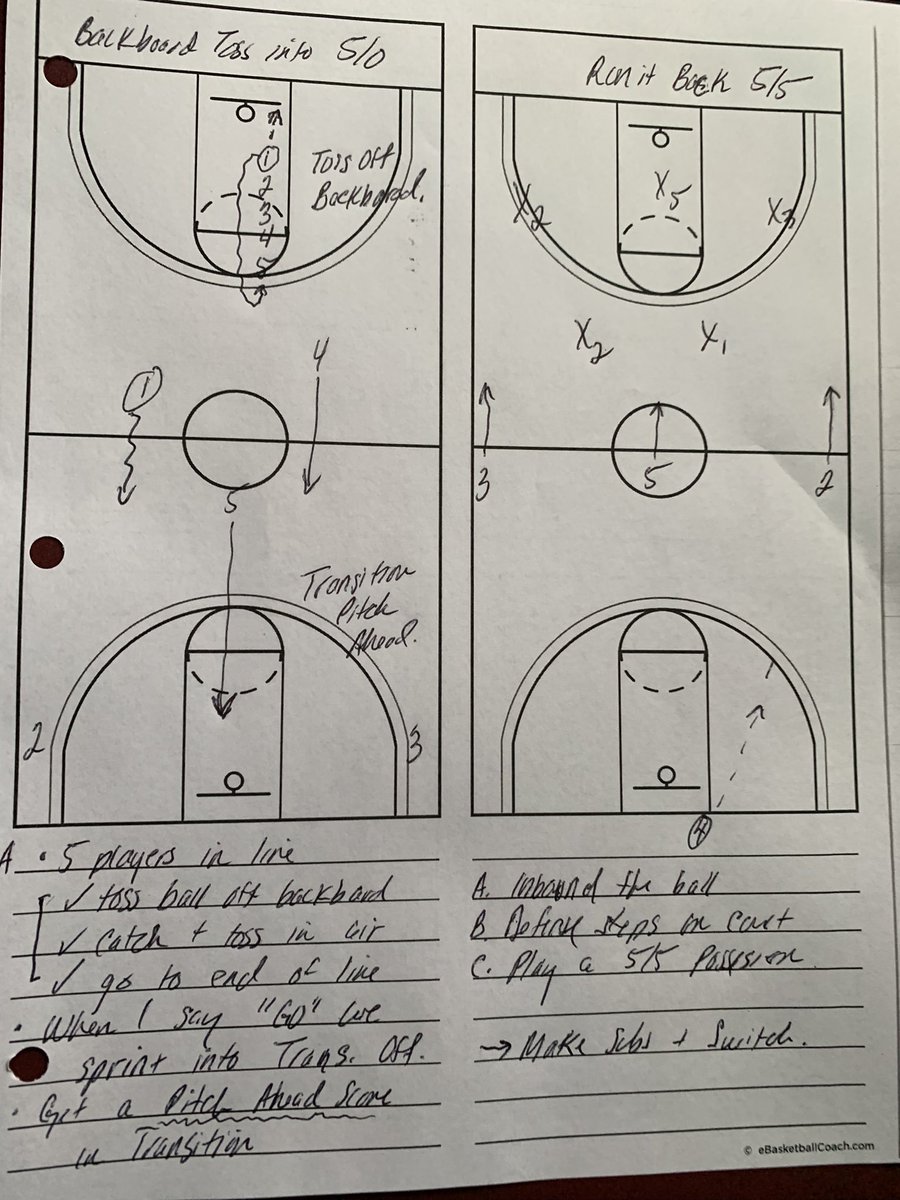 Backboard Toss into 5/0
1
2
3
4
5
Toss Off
Backboard.
4
1
5
Transition
Pitch
Ahead.
2
3
A • 5 players in line
✓ toss ball off backboard
✓ catch + toss in air
✓ go to end of line
• When I say "GO" we
sprint into Trans. Off.
• Get a Pitch Ahead Score
in Transition
Run it Back 5/5
X5
X2
X3
X2
X1
3
5
2
4
A. Inbound the ball
B. Defense steps on court
C. Play a 5/5 Possession.
→ Make Subs + Switch.
© eBasketballCoach.com